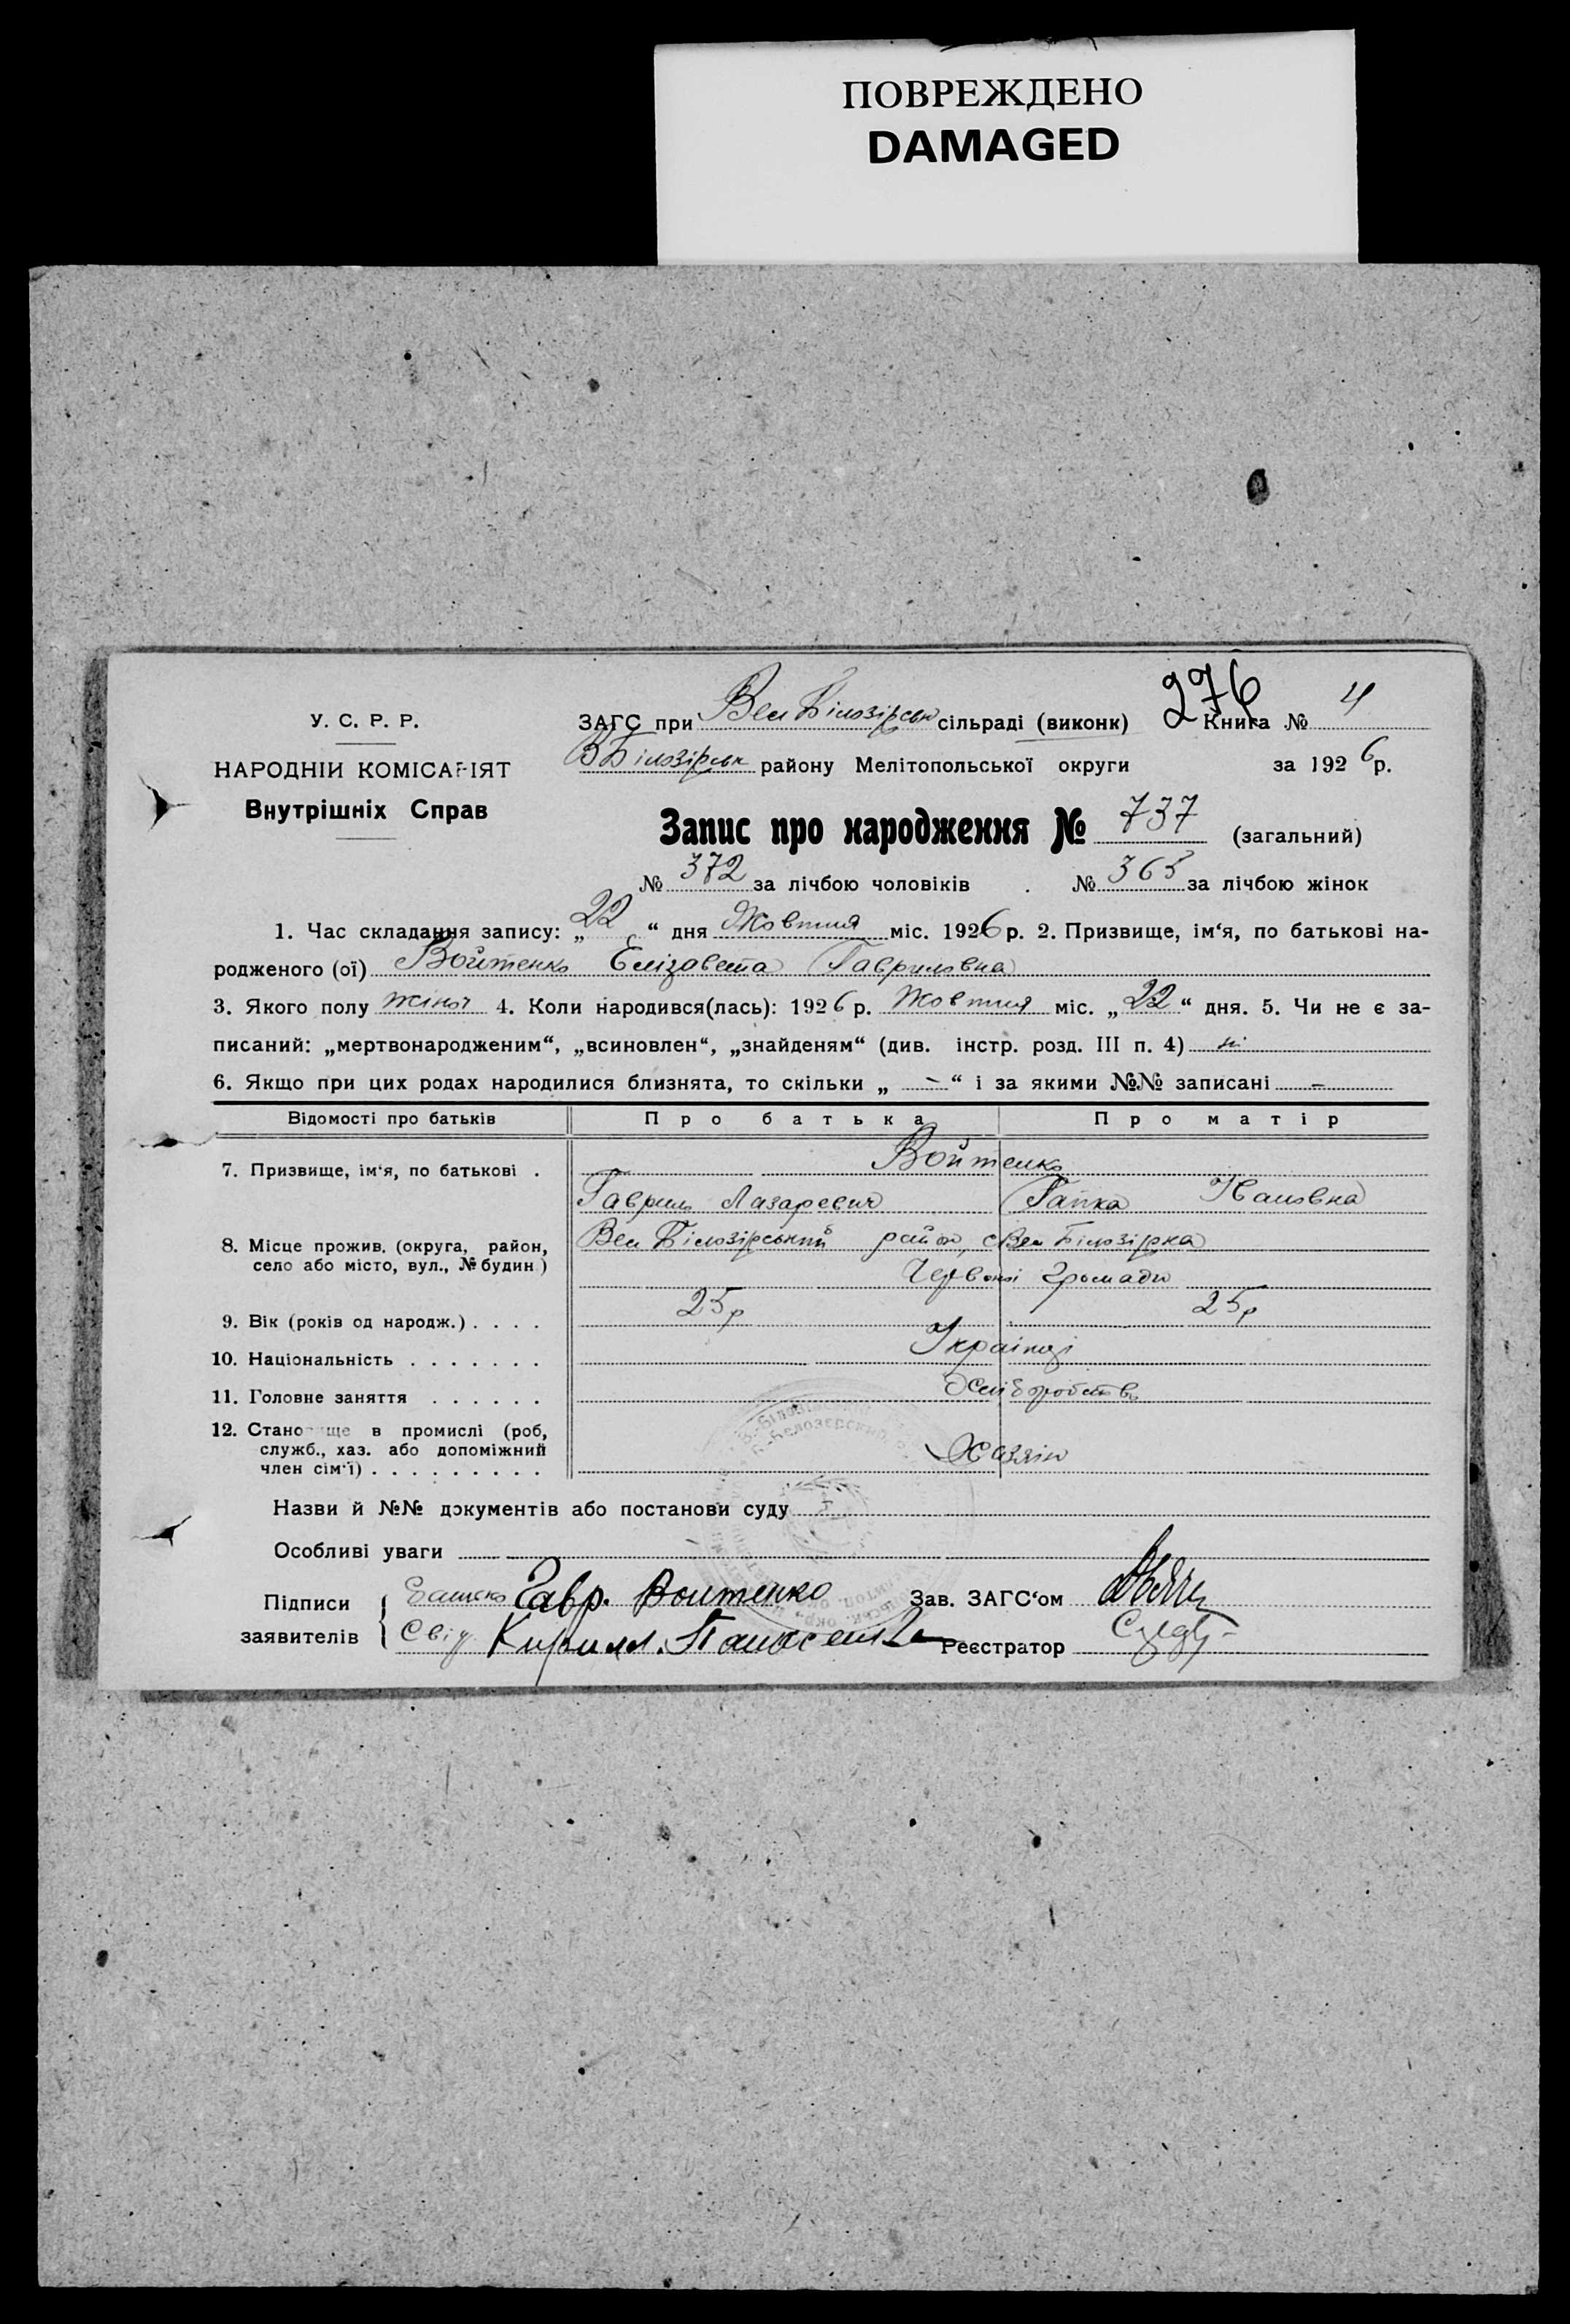 ПОВРЕЖДЕНО
DAMAGED
276
У. С. Р. Р.
НАРОДНІЙ КОМІСАРІЯТ
Внутрішніх Справ
ЗАГС при Вел Білозірськ сільраді (виконк) Книга № 4
ВБілозірськ району Мелітопольської округи за 1926 р.
Запис про народження № 737 (загальний)
№ 372 за лічбою чоловіків . № 365 за лічбою жінок
1. Час складання запису: „22“ дня Жовтня міс. 1926 р. 2. Призвище, ім‘я, по батькові на-
родженого (ої) Войтенко Елізавета Гавриловна
3. Якого полу жіноч 4. Коли народився(лась): 1926 р. Жовтня міс. „22“ дня. 5. Чи не є за-
писаний: „мертвонародженим“, „всиновлен“, „знайденям“ (див. інстр. розд. III п. 4) ні
6. Якщо при цих родах народилися близнята, то скільки „ - “ і за якими №№ записані -
Відомості про батьків Про батька Про матір
7. Призвище, ім‘я, по батькові . Войтенко
Гаврило Лазаревич Гапка Ивановна
8. Місце прожив. (округа, район, село або місто, вул., № будин.) Вел Білозірський район, с Вел Білозірка
Червоної Громади
9. Вік (років од народж.) . . . . 25 р 25 р
10. Національність . . . . . . . Українці
11. Головне заняття . . . . . . Хліборобство
12. Становище в промислі (роб,
служб., хаз. або допоміжний
член сім‘ї) . . . . . . . . . Хазяін
Назви й №№ документів або постанови суду
Особливі уваги
Підписи Батько Гавр. Воитенко Зав. ЗАГС‘ом
заявителів Свід Кирилл. Реєстратор